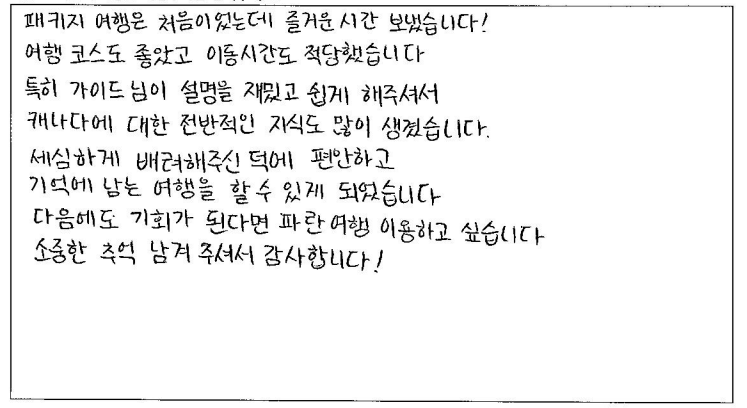 패키지 여행은 처음이었는데 즐거운 시간 보냈습니다!
여행 코스도 좋았고 이동시간도 적당했습니다
특히 가이드님이 설명을 재밌고 쉽게 해주셔서
캐나다에 대한 전반적인 지식도 많이 생겼습니다.
세심하게 배려해주신 덕에 편안하고
기억에 남는 여행을 할 수 있게 되었습니다
다음에도 기회가 된다면 파란여행 이용하고 싶습니다
소중한 추억 남겨 주셔서 감사합니다!